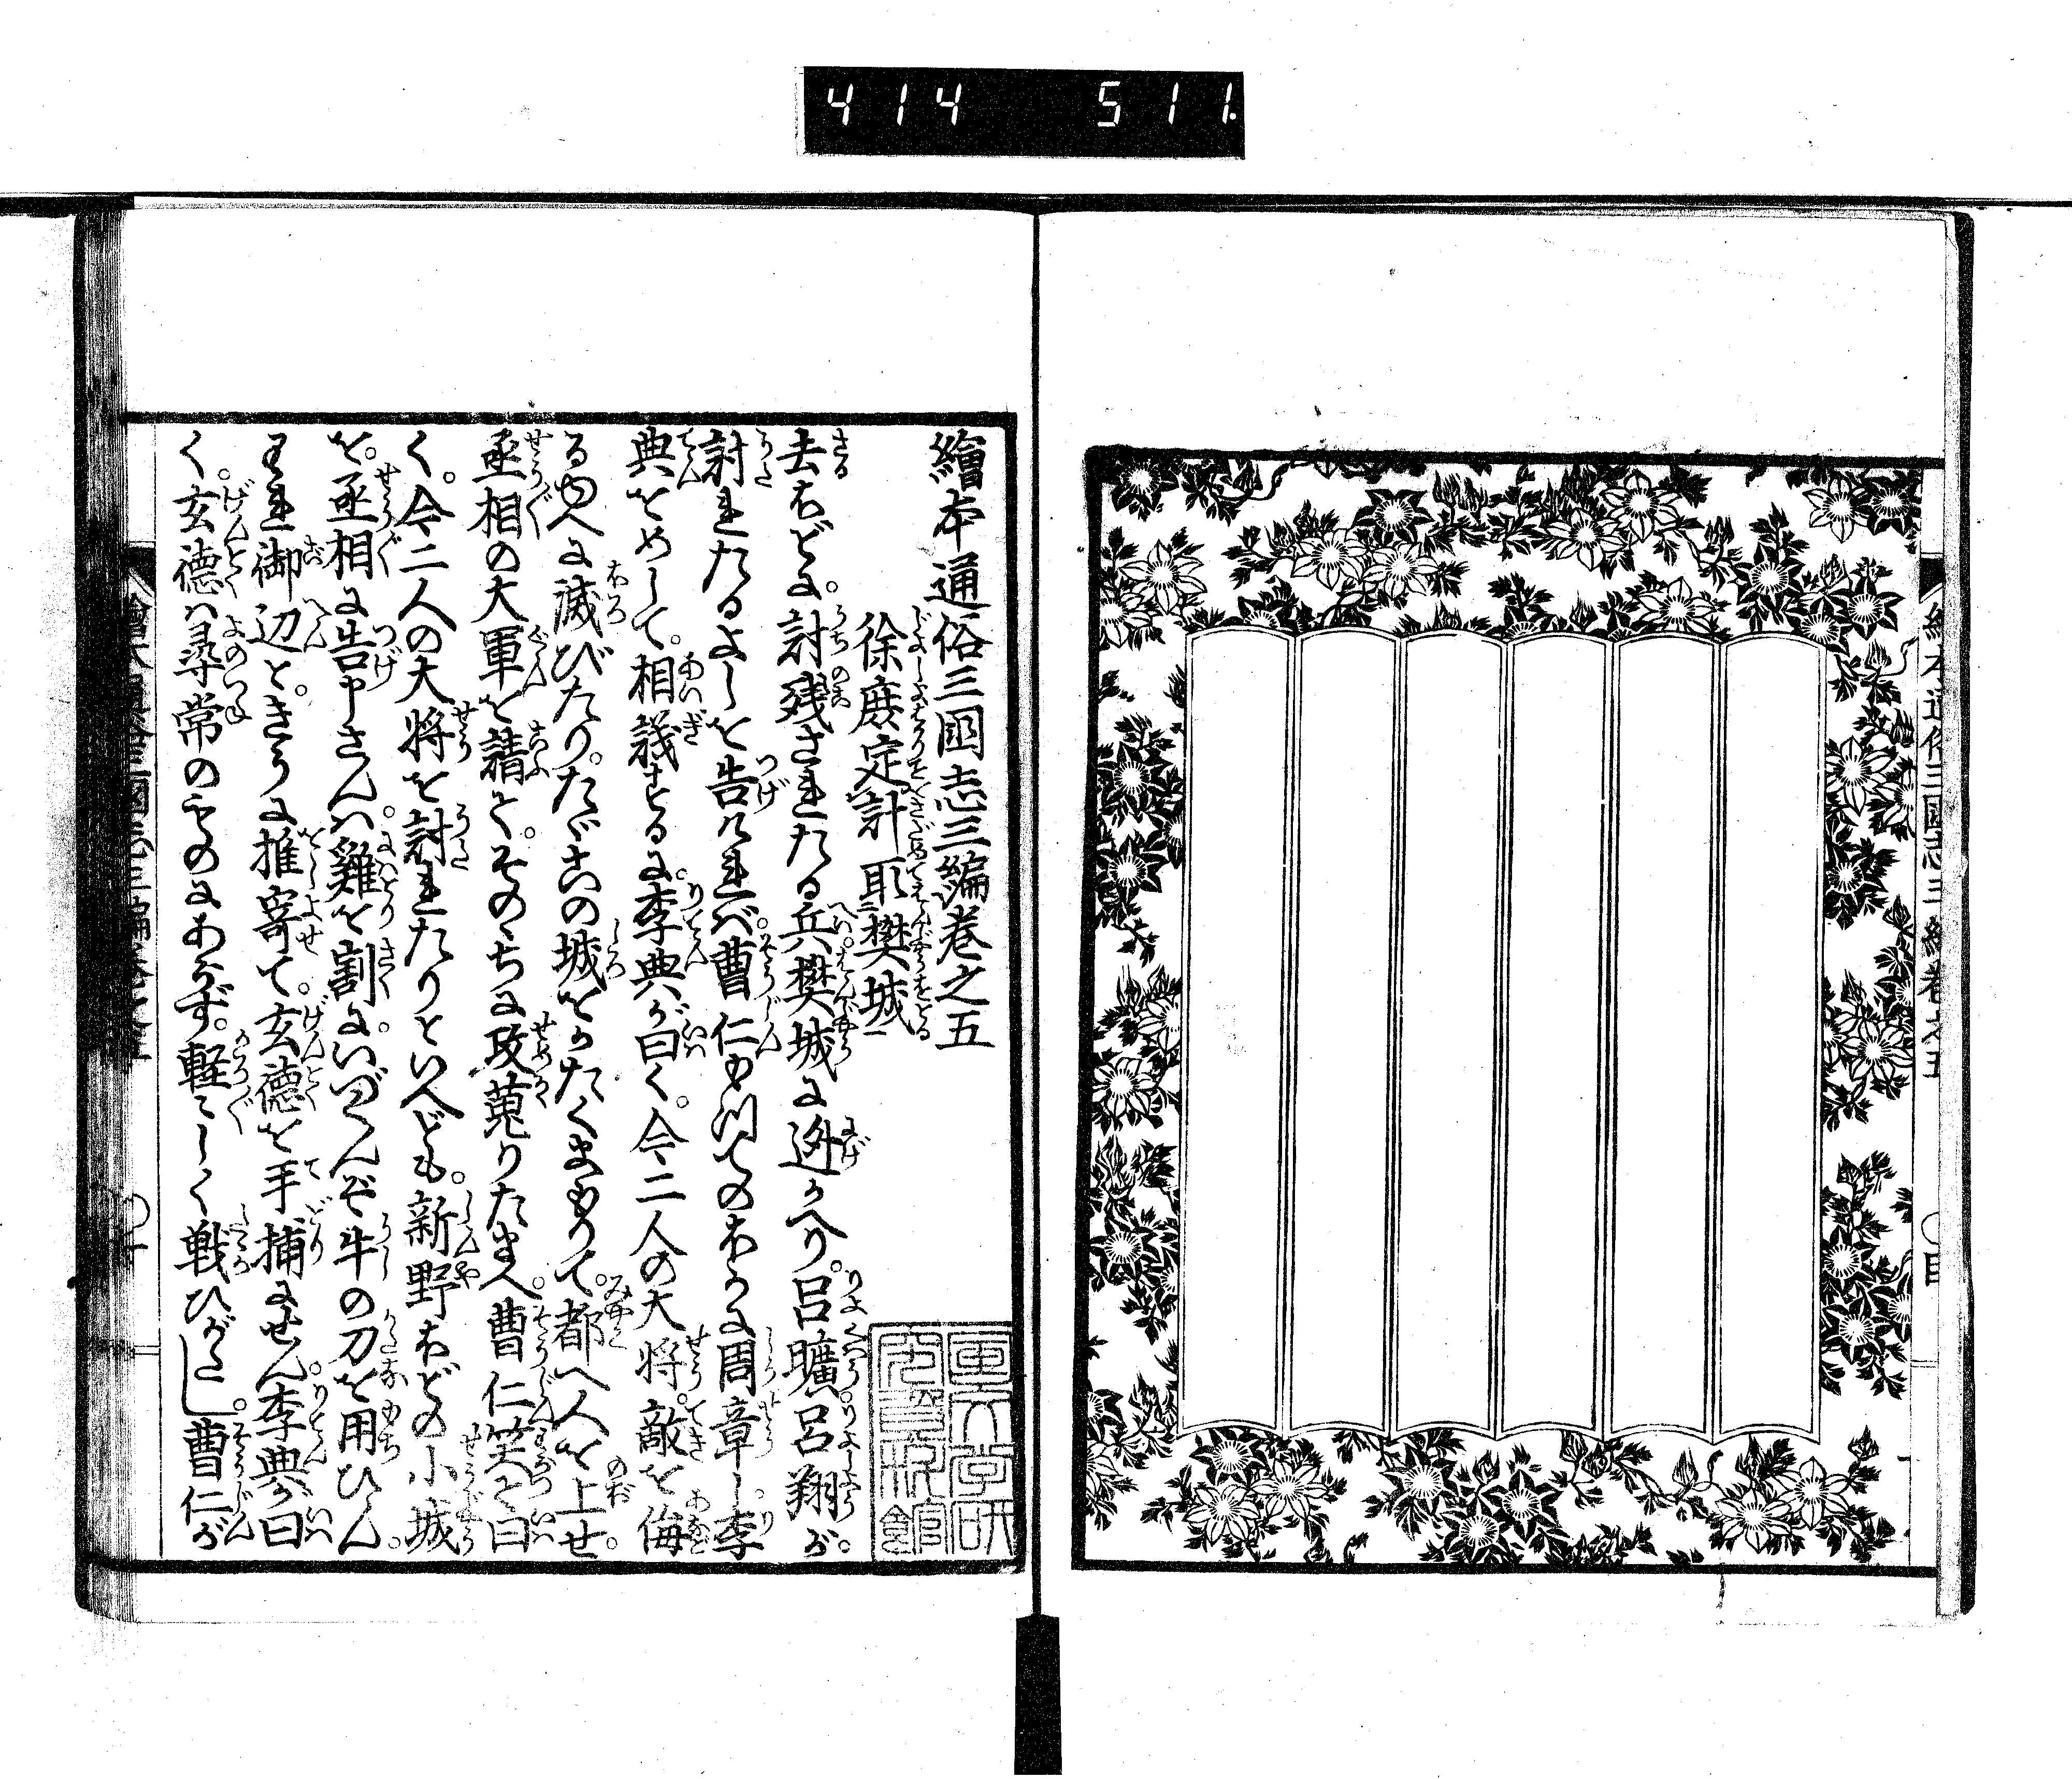 414 511.
繪本通俗三國志三編巻之五
目
繪本通俗三國志三編巻之五
徐庶定計取樊城
去ほどに。討残されたる兵樊城に迯かへり。呂曠。呂翔が。
討れたるよしを告ければ。曹仁
周章し李
典をめして。相議するに。李典が曰く。今二人の大将。敵を侮
るゆへに滅びたり。たゞこの城をかたくまもりて。都へ人を上せ。
丞相の大軍を請て。そのゝちに攻蒐りたまへ。曹仁笑て曰
く。今二人の大将を討れたりといへども。新野ほどの小城
を。丞相に告申さんハ。雞を割に。いづくんぞ牛の刀を用ひん。
われ御辺と。きうに推寄て。玄徳を手捕にせん。李典が曰
く。玄徳ハ尋常のものにあらず。軽々しく戦ひがたし。曹仁が